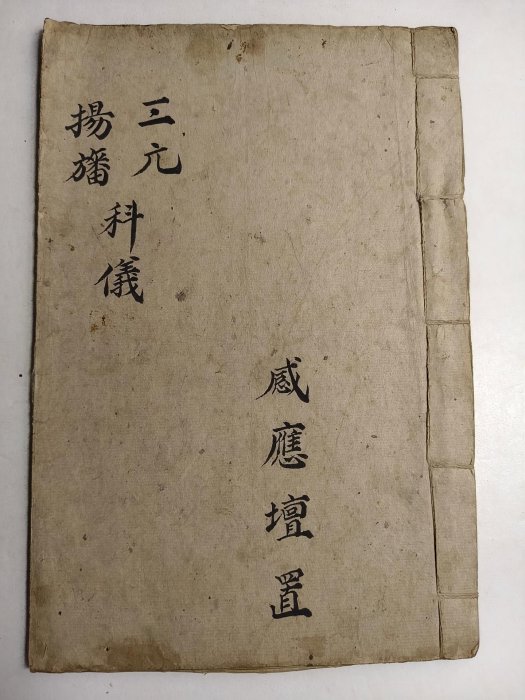 感應壇置
三元
揚旛
科儀